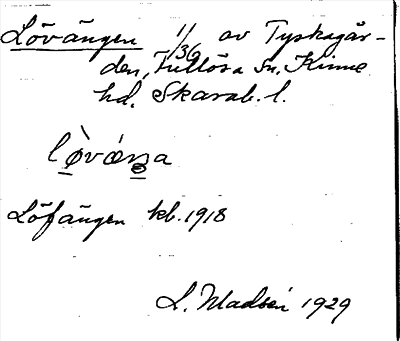 Lövängen 1/36 av Tyskagår-
den, Fullösa sn, Kinne
hd, Skarab. l.
lø̀vǽŋa
Löfängen kb. 1918
L. Madsén 1929